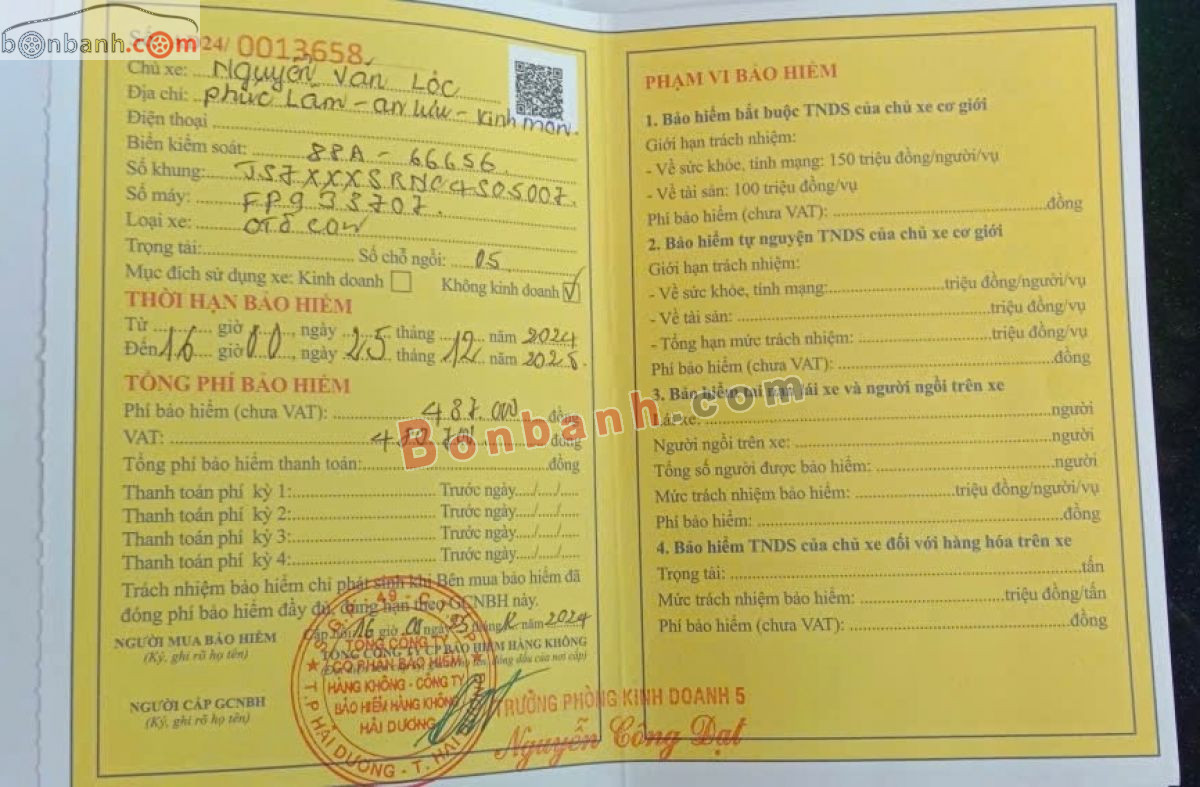 bonbanh.com
Số 2024/ 0013658
Chủ xe: Nguyễn Văn Lộc
Địa chỉ: Phúc Lâm - An Lưu - Kinh Môn.
Điện thoại
Biển kiểm soát: 88A - 66656
Số khung: JS7XXXSRNC4505007.
Số máy: FP933707.
Loại xe: ôtô con
Trọng tải: Số chỗ ngồi: 05
Mục đích sử dụng xe: Kinh doanh Không kinh doanh √
THỜI HẠN BẢO HIỂM
Từ giờ, ngày tháng năm 2024
Đến 16 giờ 00, ngày 25 tháng 12 năm
TỔNG PHÍ BẢO HIỂM
Phí bảo hiểm (chưa VAT): 487.000 đồng
VAT: đồng
Tổng phí bảo hiểm thanh toán: đồng
Thanh toán phí kỳ 1: Trước ngày..../..../....
Thanh toán phí kỳ 2: Trước ngày..../..../....
Thanh toán phí kỳ 3: Trước ngày..../..../....
Thanh toán phí kỳ 4: Trước ngày..../..../....
Trách nhiệm bảo hiểm chỉ phát sinh khi Bên mua bảo hiểm đã
đóng phí bảo hiểm đầy đủ, đúng hạn theo GCNBH này.
Cấp hồi 16 giờ 00 ngày 25 tháng 12 năm 2024
NGƯỜI MUA BẢO HIỂM
(Ký, ghi rõ họ tên)
TỔNG CÔNG TY CP BẢO HIỂM HÀNG KHÔNG
NGƯỜI CẤP GCNBH
(Ký, ghi rõ họ tên)
TỔNG CÔNG TY
CỔ PHẦN BẢO HIỂM
HÀNG KHÔNG - CÔNG TY
BẢO HIỂM HÀNG KHÔNG
HẢI DƯƠNG
T.P HẢI DƯƠNG - T. HẢI
TRƯỞNG PHÒNG KINH DOANH 5
Nguyễn Công Đạt
PHẠM VI BẢO HIỂM
1. Bảo hiểm bắt buộc TNDS của chủ xe cơ giới
Giới hạn trách nhiệm:
- Về sức khỏe, tính mạng: 150 triệu đồng/người/vụ
- Về tài sản: 100 triệu đồng/vụ
Phí bảo hiểm (chưa VAT): đồng
2. Bảo hiểm tự nguyện TNDS của chủ xe cơ giới
Giới hạn trách nhiệm:
- Về sức khỏe, tính mạng: triệu đồng/người/vụ
- Về tài sản: triệu đồng/vụ
- Tổng hạn mức trách nhiệm: triệu đồng/vụ
Phí bảo hiểm (chưa VAT): đồng
3. Bảo hiểm tai nạn lái xe và người ngồi trên xe
Lái xe: người
Người ngồi trên xe: người
Tổng số người được bảo hiểm: người
Mức trách nhiệm bảo hiểm: triệu đồng/người/vụ
Phí bảo hiểm: đồng
4. Bảo hiểm TNDS của chủ xe đối với hàng hóa trên xe
Trọng tải: tấn
Mức trách nhiệm bảo hiểm: triệu đồng/tấn
Phí bảo hiểm (chưa VAT): đồng
Bonbanh.com